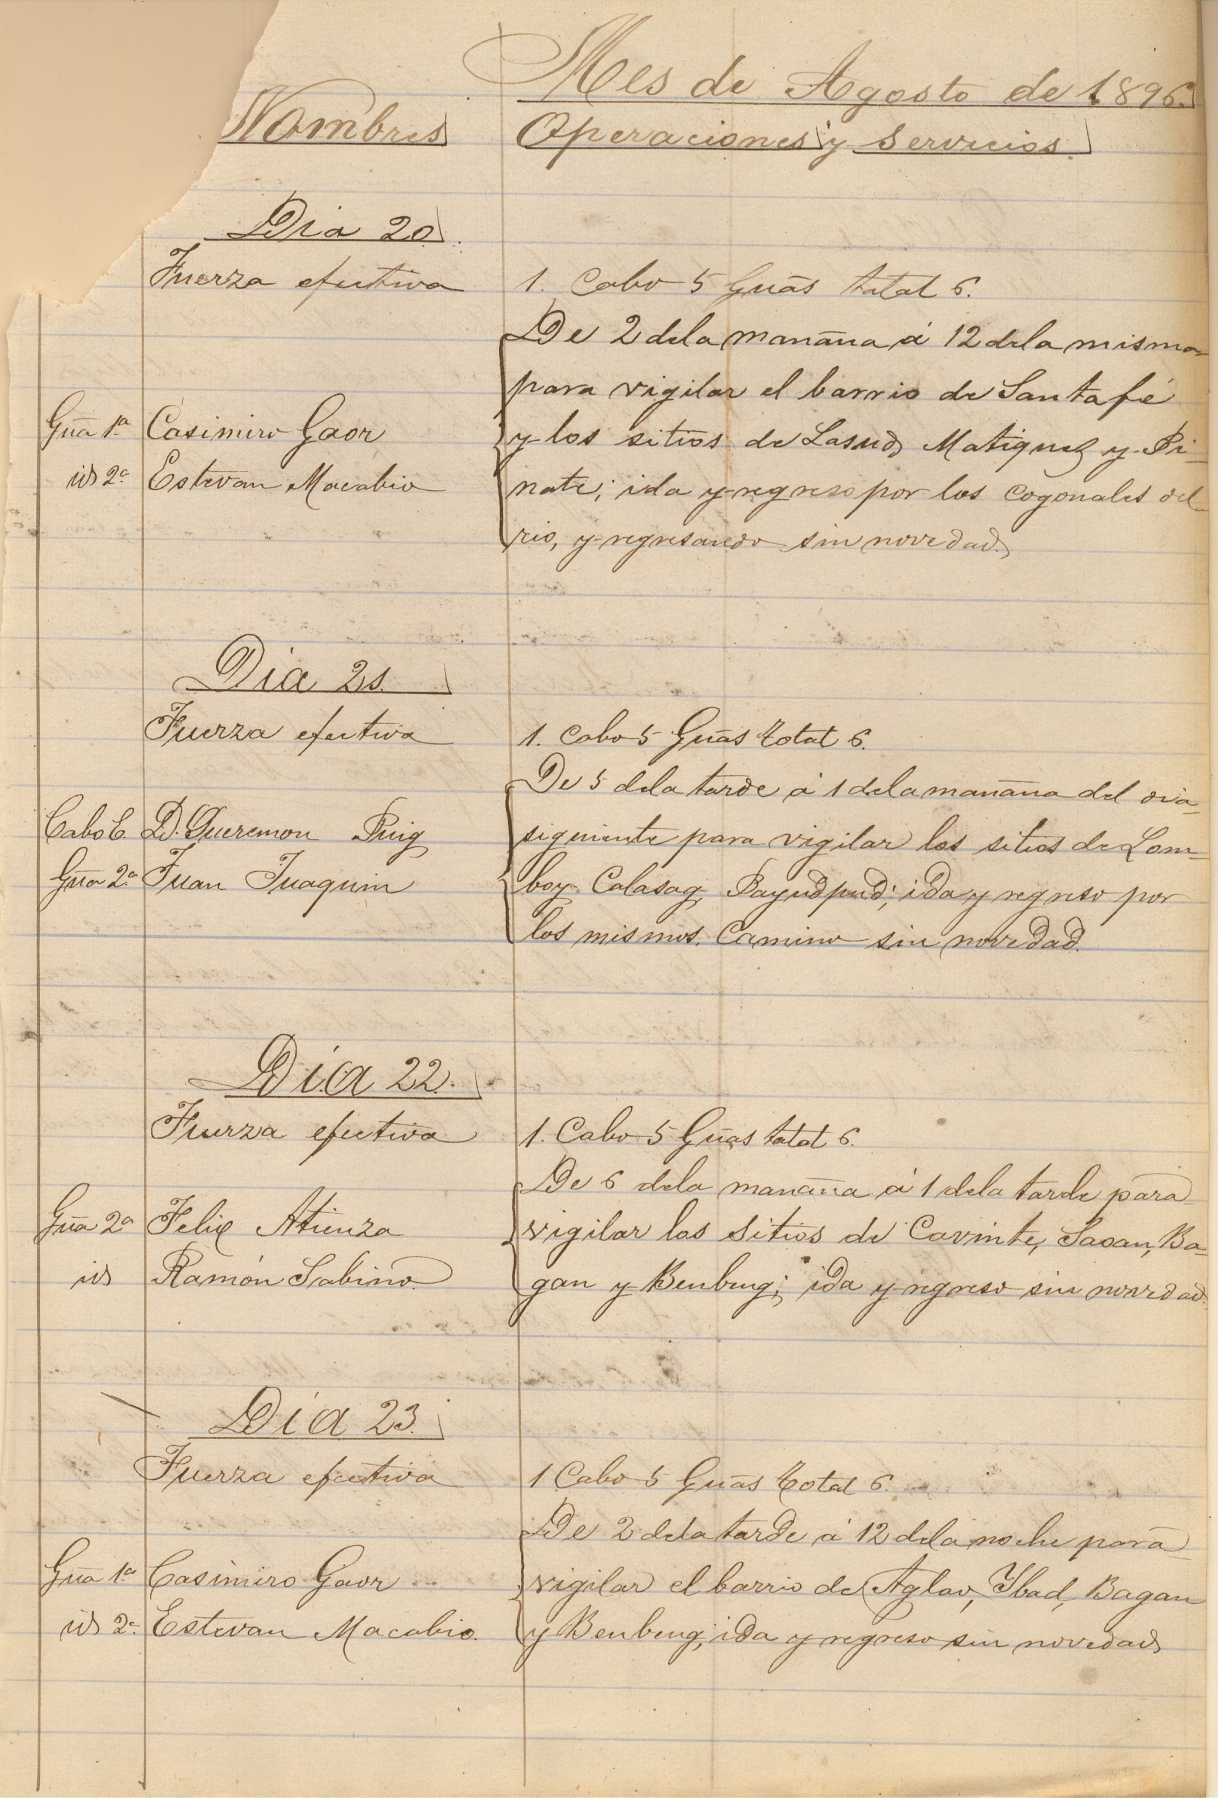 Mes de Agosto de 1896.
Nombres Operaciones y Servicios.
Dia 20.
Fuerza efectiva 1. Cabo 5 Guãs total 6.
De 2 dela mañana á 12 dela misma
para vigilar el barrio de Santafé
Gũa 1.ª Casimiro Gaor y los sitios de Lasud, Matiquez y Pi-
id 2.ª Estevan Macabio nate; ida y regreso por los cogonales del
rio, y regresando sin novedad.
Día 21.
Fuerza efectiva 1. Cabo 5 Guãs total 6.
De 5 dela tarde á 1 dela mañana del dia
Cabo C. D. Queremon Puig siguiente para vigilar los sitios de Lom-
Gũa 2.ª Juan Juaquin boy Calasag, Payudpud; ida y regreso por
los mismos. Camino sin novedad.
Día 22.
Fuerza efectiva 1. Cabo 5 Guãs total 6.
De 6 dela mañana á 1 dela tarde para
Gũa 2.ª Felix Atienza vigilar los sitios de Cavinte, Saoan, Ba-
id Ramón Sabino gan y Benbeng; ida y regreso sin novedad.
Día 23.
Fuerza efectiva 1 Cabo 5 Guãs total 6.
De 2 dela tarde á 12 dela noche para
Gũa 1.ª Casimiro Gaor vigilar el barrio de Aglao, Ybad, Bagan
id 2.ª Estevan Macabio. y Benbeng, ida y regreso sin novedad